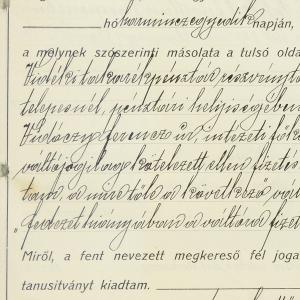 hó harmincegyedik napján,
a melynek szószerinti másolata a túlsó olda
Vidéki takarékpénztár részvényta
telepnél, pénztári helyiségében
Vidóczy Ferencz úr, intézeti fők
váltójogilag kötelezett ellen fizetés
tam, a mire tőle a következő vá
"fedezet hiányában a váltóra fizet
Miről, a fent nevezett megkereső fél joga
tanusitványt kiadtam.